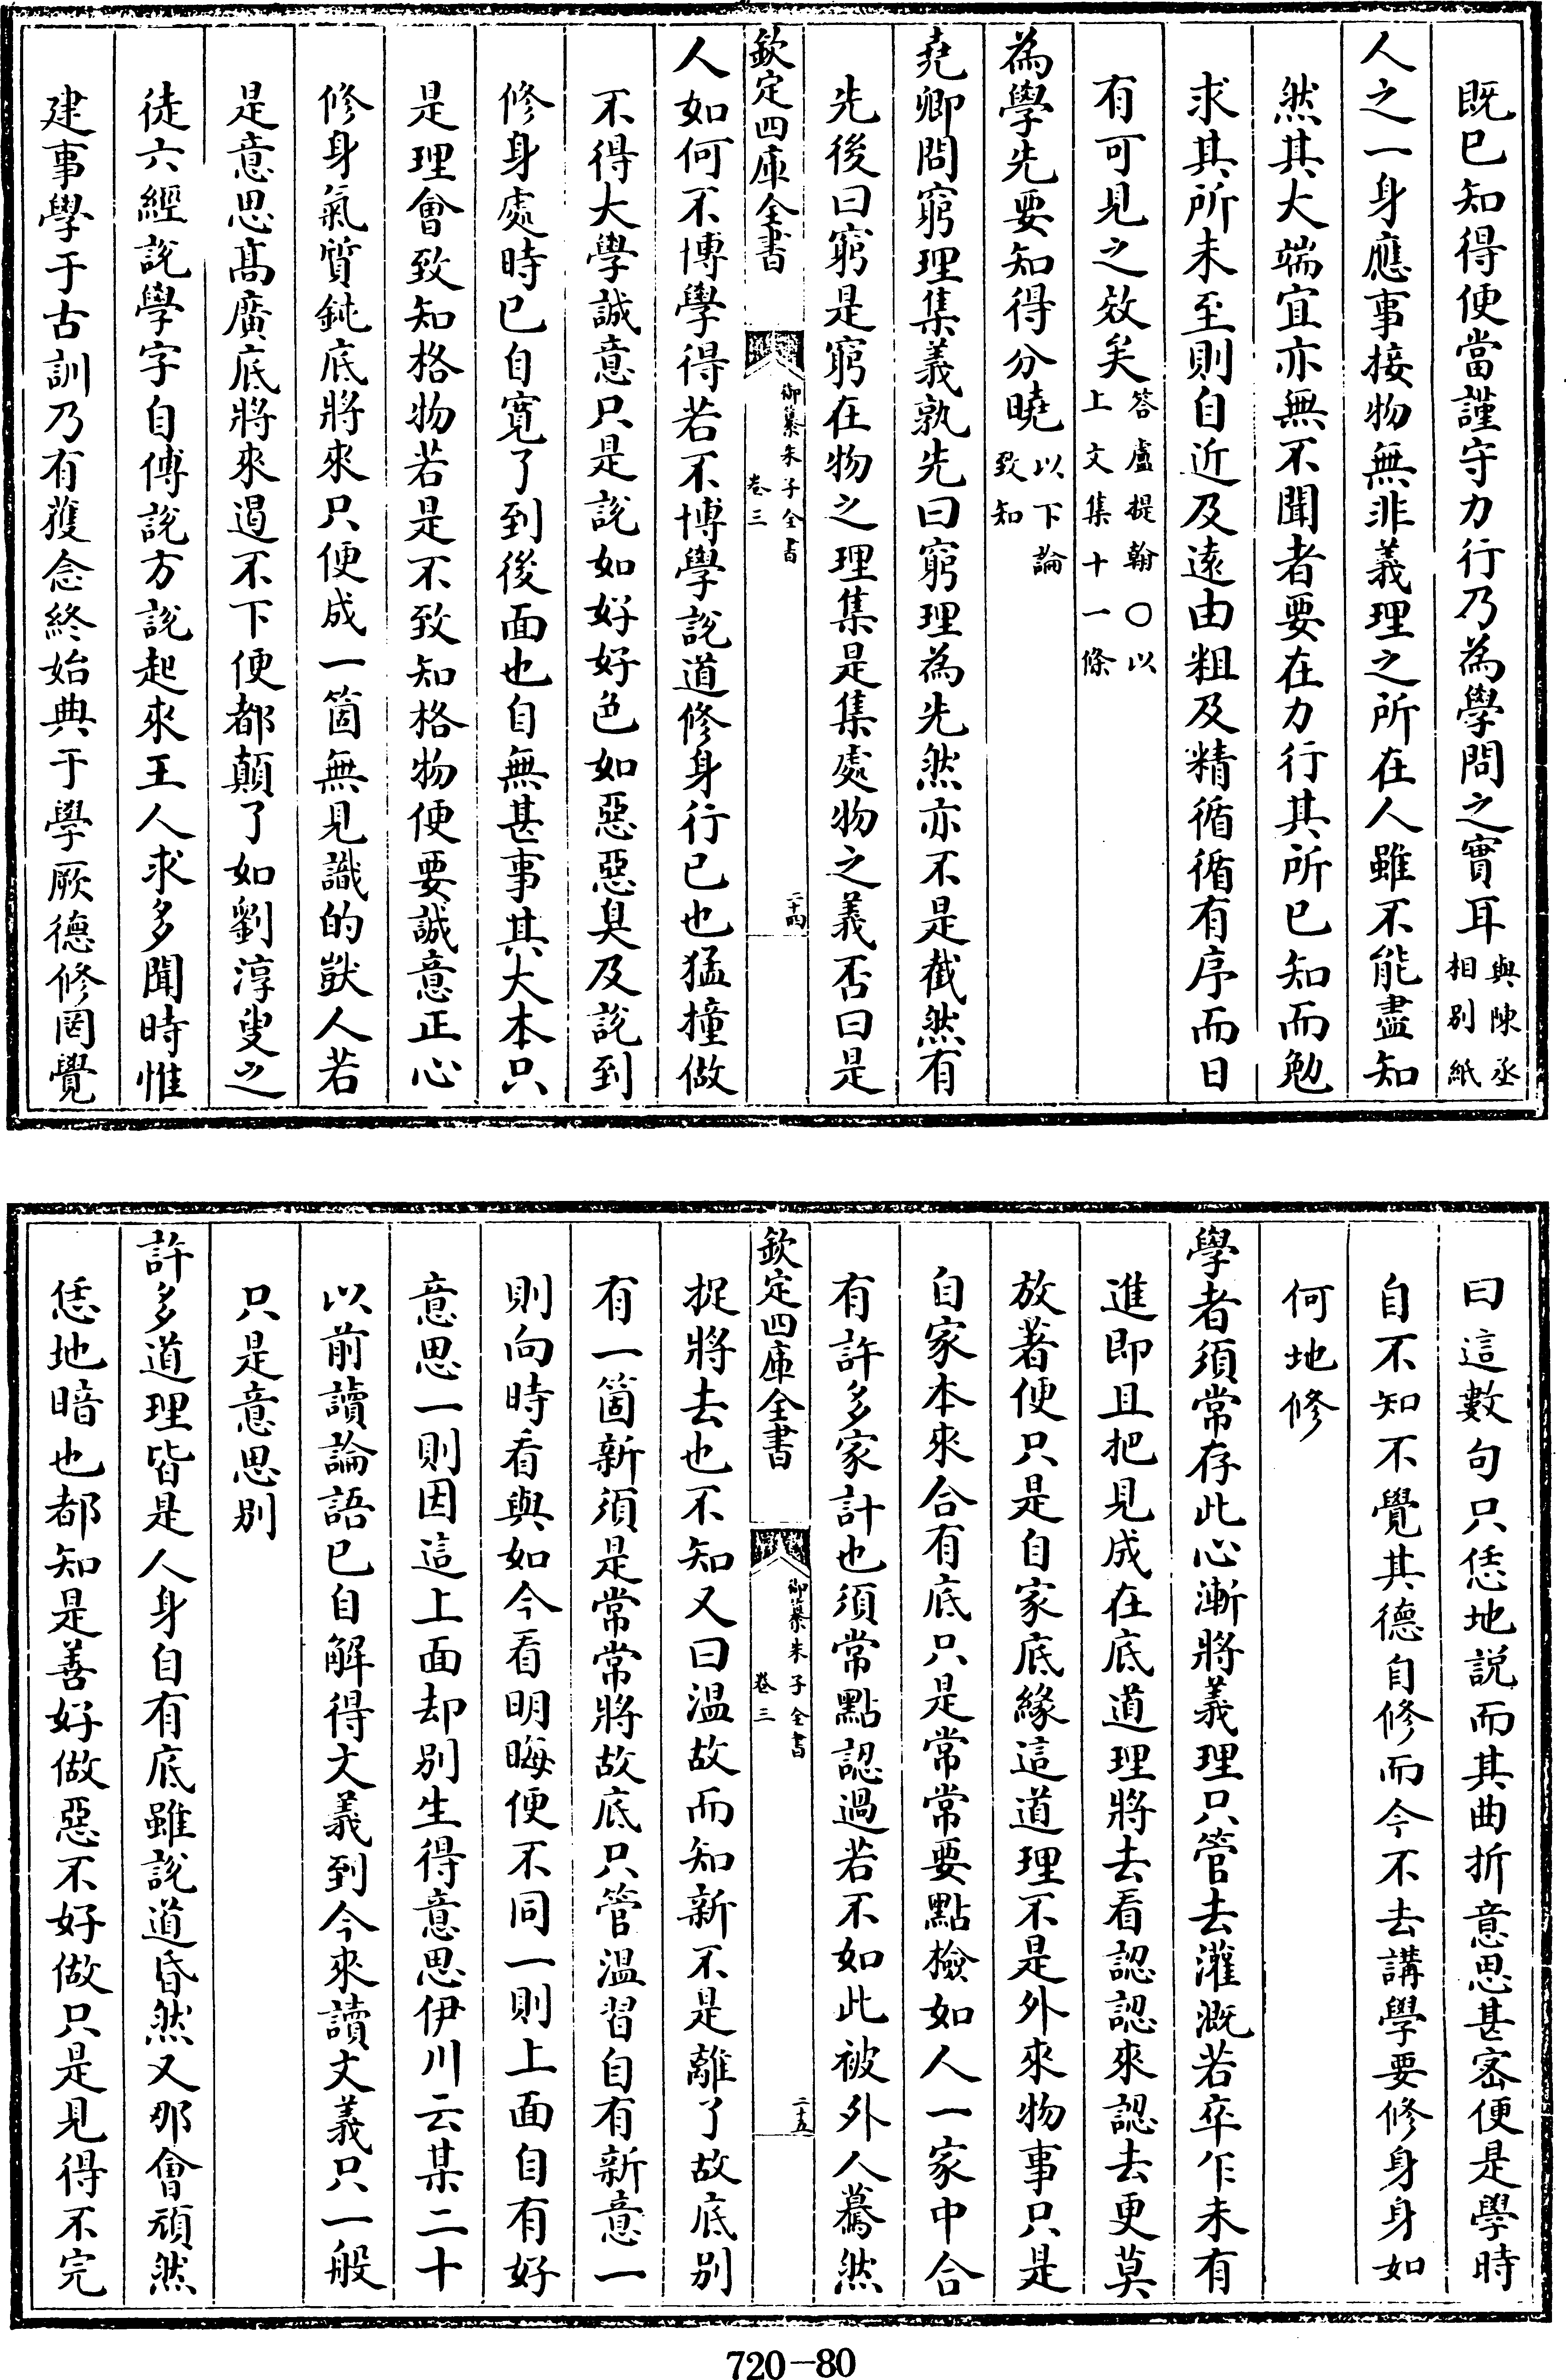 既已知得便當謹守力行乃為學問之實耳與陳丞相别紙
人之一身應事接物無非義理之所在人雖不能盡知
然其大端宜亦無不聞者要在力行其所已知而勉
求其所未至則自近及遠由粗及精循循有序而日
有可見之效矣答盧提翰〇以上文集十一條
為學先要知得分曉以下論致知
堯卿問窮理集義孰先曰窮理為先然亦不是截然有
先後曰窮是窮在物之理集是集處物之義否曰是
欽定四庫全書
御纂朱子全書
卷三
二十四
人如何不博學得若不博學說道修身行已也猛撞做
不得大學誠意只是說如好好色如惡惡臭及說到
修身處時已自寬了到後面也自無甚事其大本只
是理會致知格物若是不致知格物便要誠意正心
修身氣質鈍底將來只便成一箇無見識的獃人若
是意思髙廣底將來遏不下便都顛了如劉淳叟之
徒六經說學字自傅說方說起來王人求多聞時惟
建事學于古訓乃有獲念終始典于學厥德修罔覺
曰這數句只恁地説而其曲折意思甚宻便是學時
自不知不覺其德自修而今不去講學要修身身如
何地修
學者須常存此心漸將義理只管去灌溉若卒乍未有
進即且把見成在底道理將去看認認來認去更莫
放著便只是自家底緣這道理不是外來物事只是
自家本來合有底只是常常要點檢如人一家中合
有許多家計也須常點認過若不如此被外人驀然
欽定四庫全書
御纂朱子全書
卷三
二十五
捉將去也不知又曰温故而知新不是離了故底别
有一箇新須是常常將故底只管温習自有新意一
則向時看與如今看明晦便不同一則上面自有好
意思一則因這上面却别生得意思伊川云某二十
以前讀論語已自解得文義到今來讀文義只一般
只是意思别
許多道理皆是人身自有底雖說道昏然又那㑹頑然
恁地暗也都知是善好做惡不好做只是見得不完
720-80